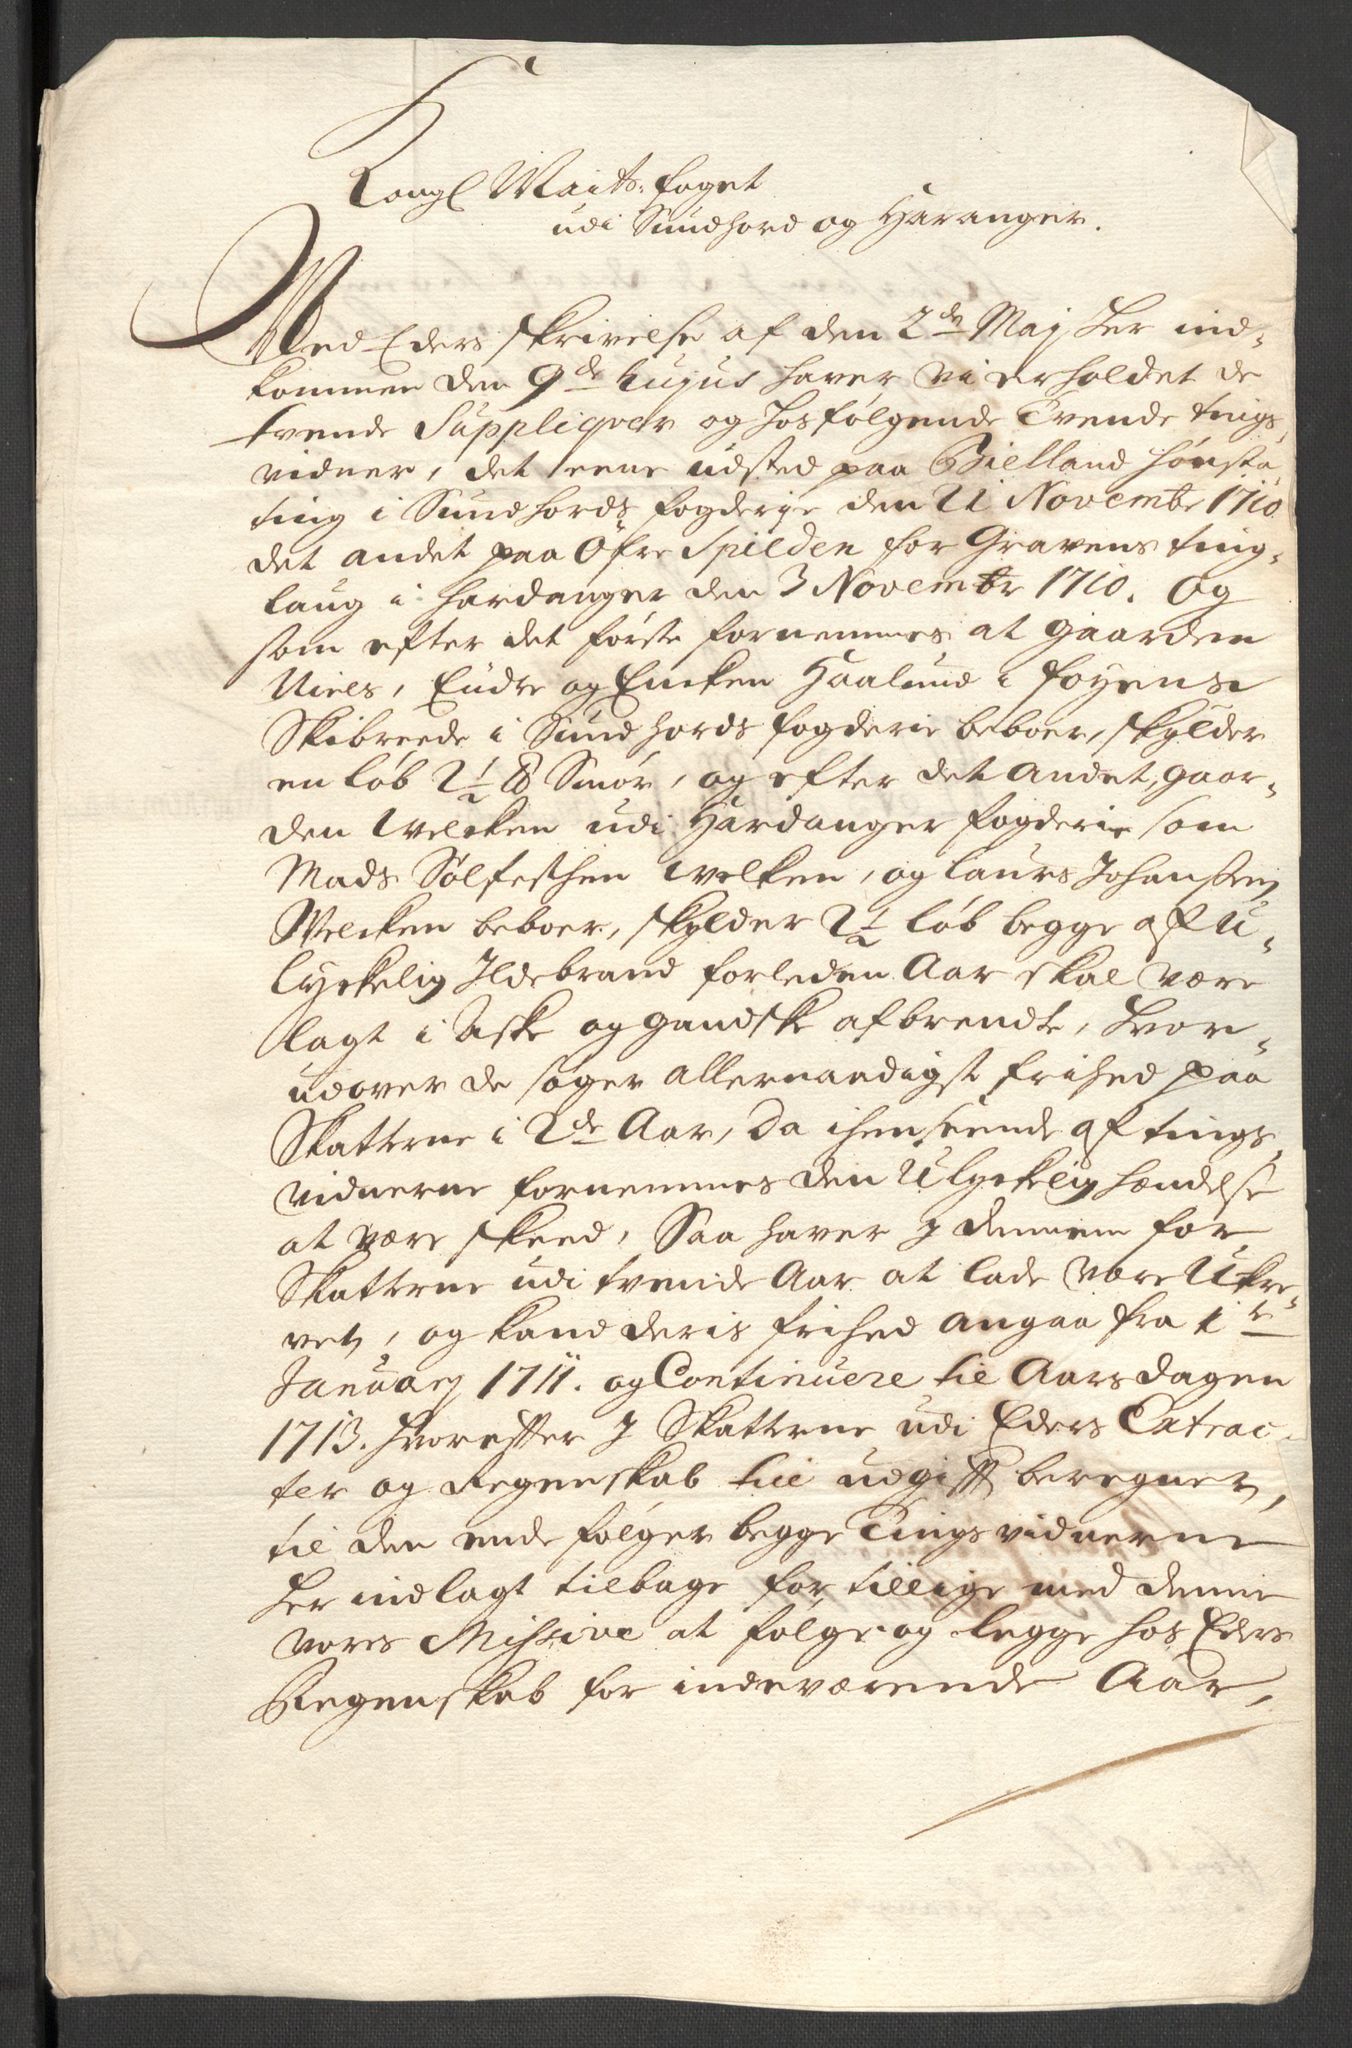 Kongl Maits: foget
udi Sundhord og Haranger.
Med Eders skrivelse af den 2de Maij her ind-
kommen den 9de hujus haver vi erholdet de
tvende Suppliqver og hosfølgende Tvende tings
vidner, det eene udsted paa Bielland høusta
ting i Sundhords fogderje den 21 Novembr 1710
det andet paa Øfre Spilden for Gravens ting-
laug i Hardanger den 3 Novembr 1710. Og
som efter det første fornemmes at gaarden
Niels, Endre og Encken Haalund i føyens
Skibreede i Sundhords fogderie beboer, skylder
en løb 2½ ℔ Smør, og efter det andet, gaar-
den Welcken udi Hardanger fogderie som
Mads Sølfesthen Welken, og Laurs Johanssen
Welcken beboer, skylder 2½ løb begge af U-
lyckelig Ildebrand forleden Aar skal være
lagt i Aske og gandske afbrendte, hvor-
udover de søger allernaadigst frihed paa
Skatterne i 2de Aar, Da i henseende af tings
vidnerne fornemmes den Ulyckelig hændelse
at være skeed, Saa haver I dennem for
Skatterne udi tvende Aar at lade være Ukre-
vet, og kand deris frihed angaa fra 1te
January 1711. og Continuere til Aarsdagen
1713. hvorefter I Skatterne udi Eders Extrac-
ter og Regenskab til udgifft beregner,
til den ende følger begge Tingsvidnerne
her indlagt tilbage for tillige med denne
vores Missive at følge og legge hos Eders
Regenskab for indeværende Aar,